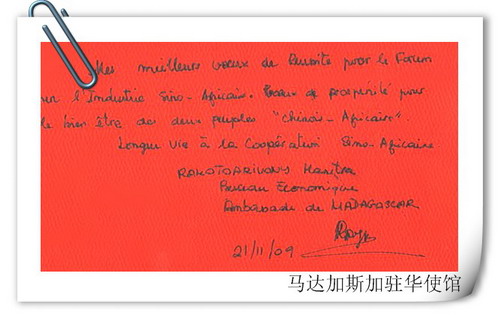 Mes meilleurs vœux de Réussite pour le Forum
sur l'Industrie Sino-Africain. Vœux de prospérité pour
le bien être des deux peuples "chinois-Africain".
Longue Vie à la Coopération Sino-Africaine
RAKOTOARIVONY
Bureau Économique
Ambassade de MADAGASCAR
21/11/09
马达加斯加驻华使馆